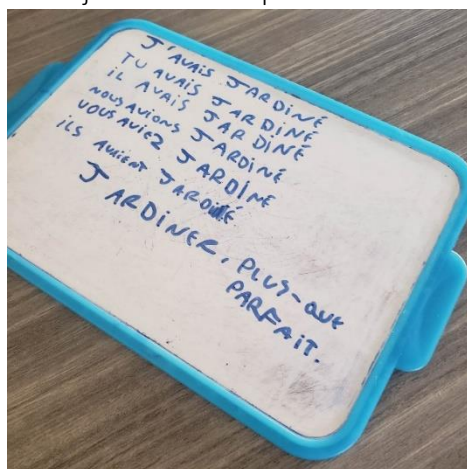 J'AVAIS JARDINÉ
TU AVAIS JARDINÉ
IL AVAIS JARDINÉ
NOUS AVIONS JARDINÉ
VOUS AVIEZ JARDINÉ
ILS AVAIENT JARDINÉ
JARDINER, PLUS-QUE
PARFAIT.